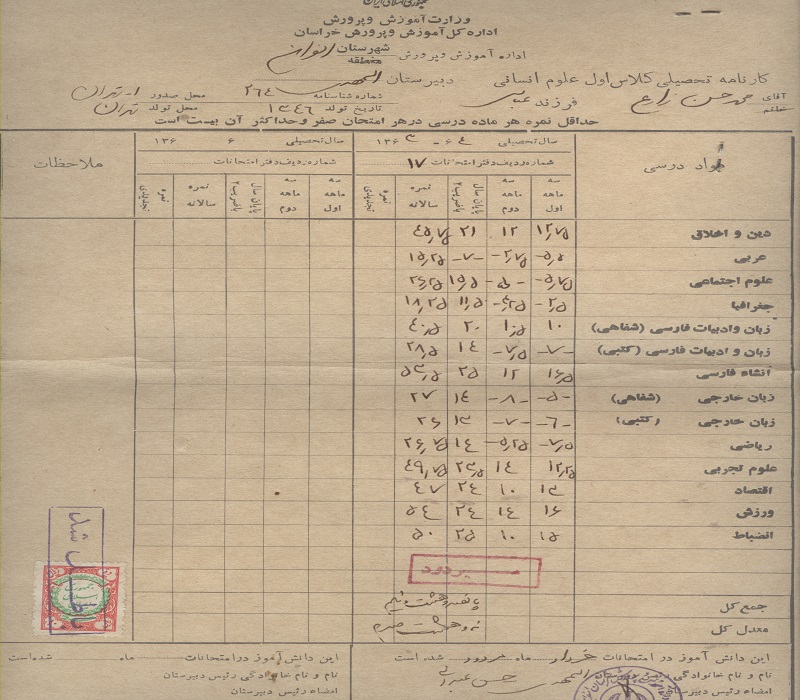 جمهوری اسلامی ایران
وزارت آموزش و پرورش
اداره کل آموزش و پرورش خراسان
اداره آموزش و پرورش شهرستان منطقه
کارنامه تحصیلی کلاس اول علوم انسانی دبیرستان
آقای خانم محمد حسن زارع فرزند عباس شماره شناسنامه ۲۶۴ محل صدور تهران
تاریخ تولد ۱۳۴۶ محل تولد تهران
حداقل نمره هر ماده درسی در هر امتحان صفر و حداکثر آن بیست است
مواد درسی سال تحصیلی ۶۴ - ۱۳۶۳ سال تحصیلی ۶ ۱۳۶ ملاحظات
شماره ردیف دفتر امتحانات ۱۷ شماره ردیف دفتر امتحانات
سه ماهه اول سه ماهه دوم پایان سال باضریب ۲ نمره سالانه نمره تجدیدی سه ماهه اول سه ماهه دوم پایان سال باضریب ۲ نمره سالانه نمره تجدیدی
دین و اخلاق ۱۲٫۷۵ ۱۲ ۲۱ ۴۵٫۷۵
عربی -۵٫۵ -۲٫۷۵ -۷- ۱۵٫۲۵
علوم اجتماعی -۵٫۷۵ -۵- ۱۵٫۵ ۲۶٫۲۵
جغرافیا -۲٫۵ -۴٫۲۵ ۱۱٫۵ ۱۸٫۲۵
زبان و ادبیات فارسی (شفاهی) ۱۰ ۱۰٫۵ ۲۰ ۴۰٫۵
زبان و ادبیات فارسی (کتبی) -۷- -۷٫۵ ۱۴ ۲۸٫۵
انشاء فارسی ۱۶٫۵ ۱۲ ۲۵ ۵۳٫۵
زبان خارجی (شفاهی) -۵- -۸- ۱۴ ۲۷
زبان خارجی (کتبی) -۶- -۷- ۱۳ ۲۶
ریاضی -۷٫۵ -۵٫۲۵ ۱۴ ۲۶٫۷۵
علوم تجربی ۱۲٫۲۵ ۱۴ ۲۳٫۵ ۴۹٫۷۵
اقتصاد ۱۳ ۱۰ ۲۴ ۴۷
ورزش ۱۶ ۱۴ ۲۴ ۵۴
انضباط ۱۵ ۱۰ ۲۵ ۵۰
مردود
جمع کل پانصد و هشت و نیم
معدل کل نه و هشت صدم
باطل شد
این دانش آموز در امتحانات خرداد ماه مردود شده است این دانش آموز در امتحانات ماه شده است
نام و نام خانوادگی رئیس دبیرستان حسن نام و نام خانوادگی رئیس دبیرستان
امضاء رئیس دبیرستان امضاء رئیس دبیرستان